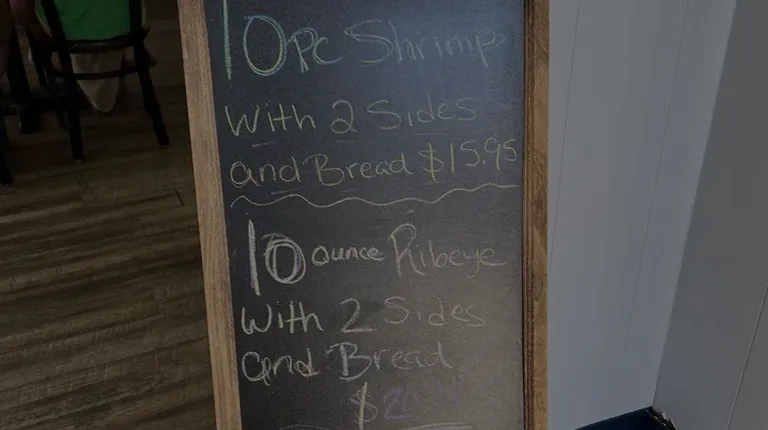 10 PC Shrimp
With 2 Sides
and Bread $15.95
10 ounce Ribeye
With 2 Sides
and Bread
$